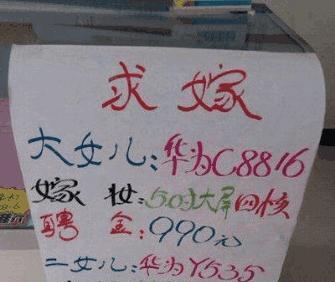 求嫁
大女儿:华为C8816
嫁妆:5.0吋大屏四核
聘金:990元
二女儿:华为Y535